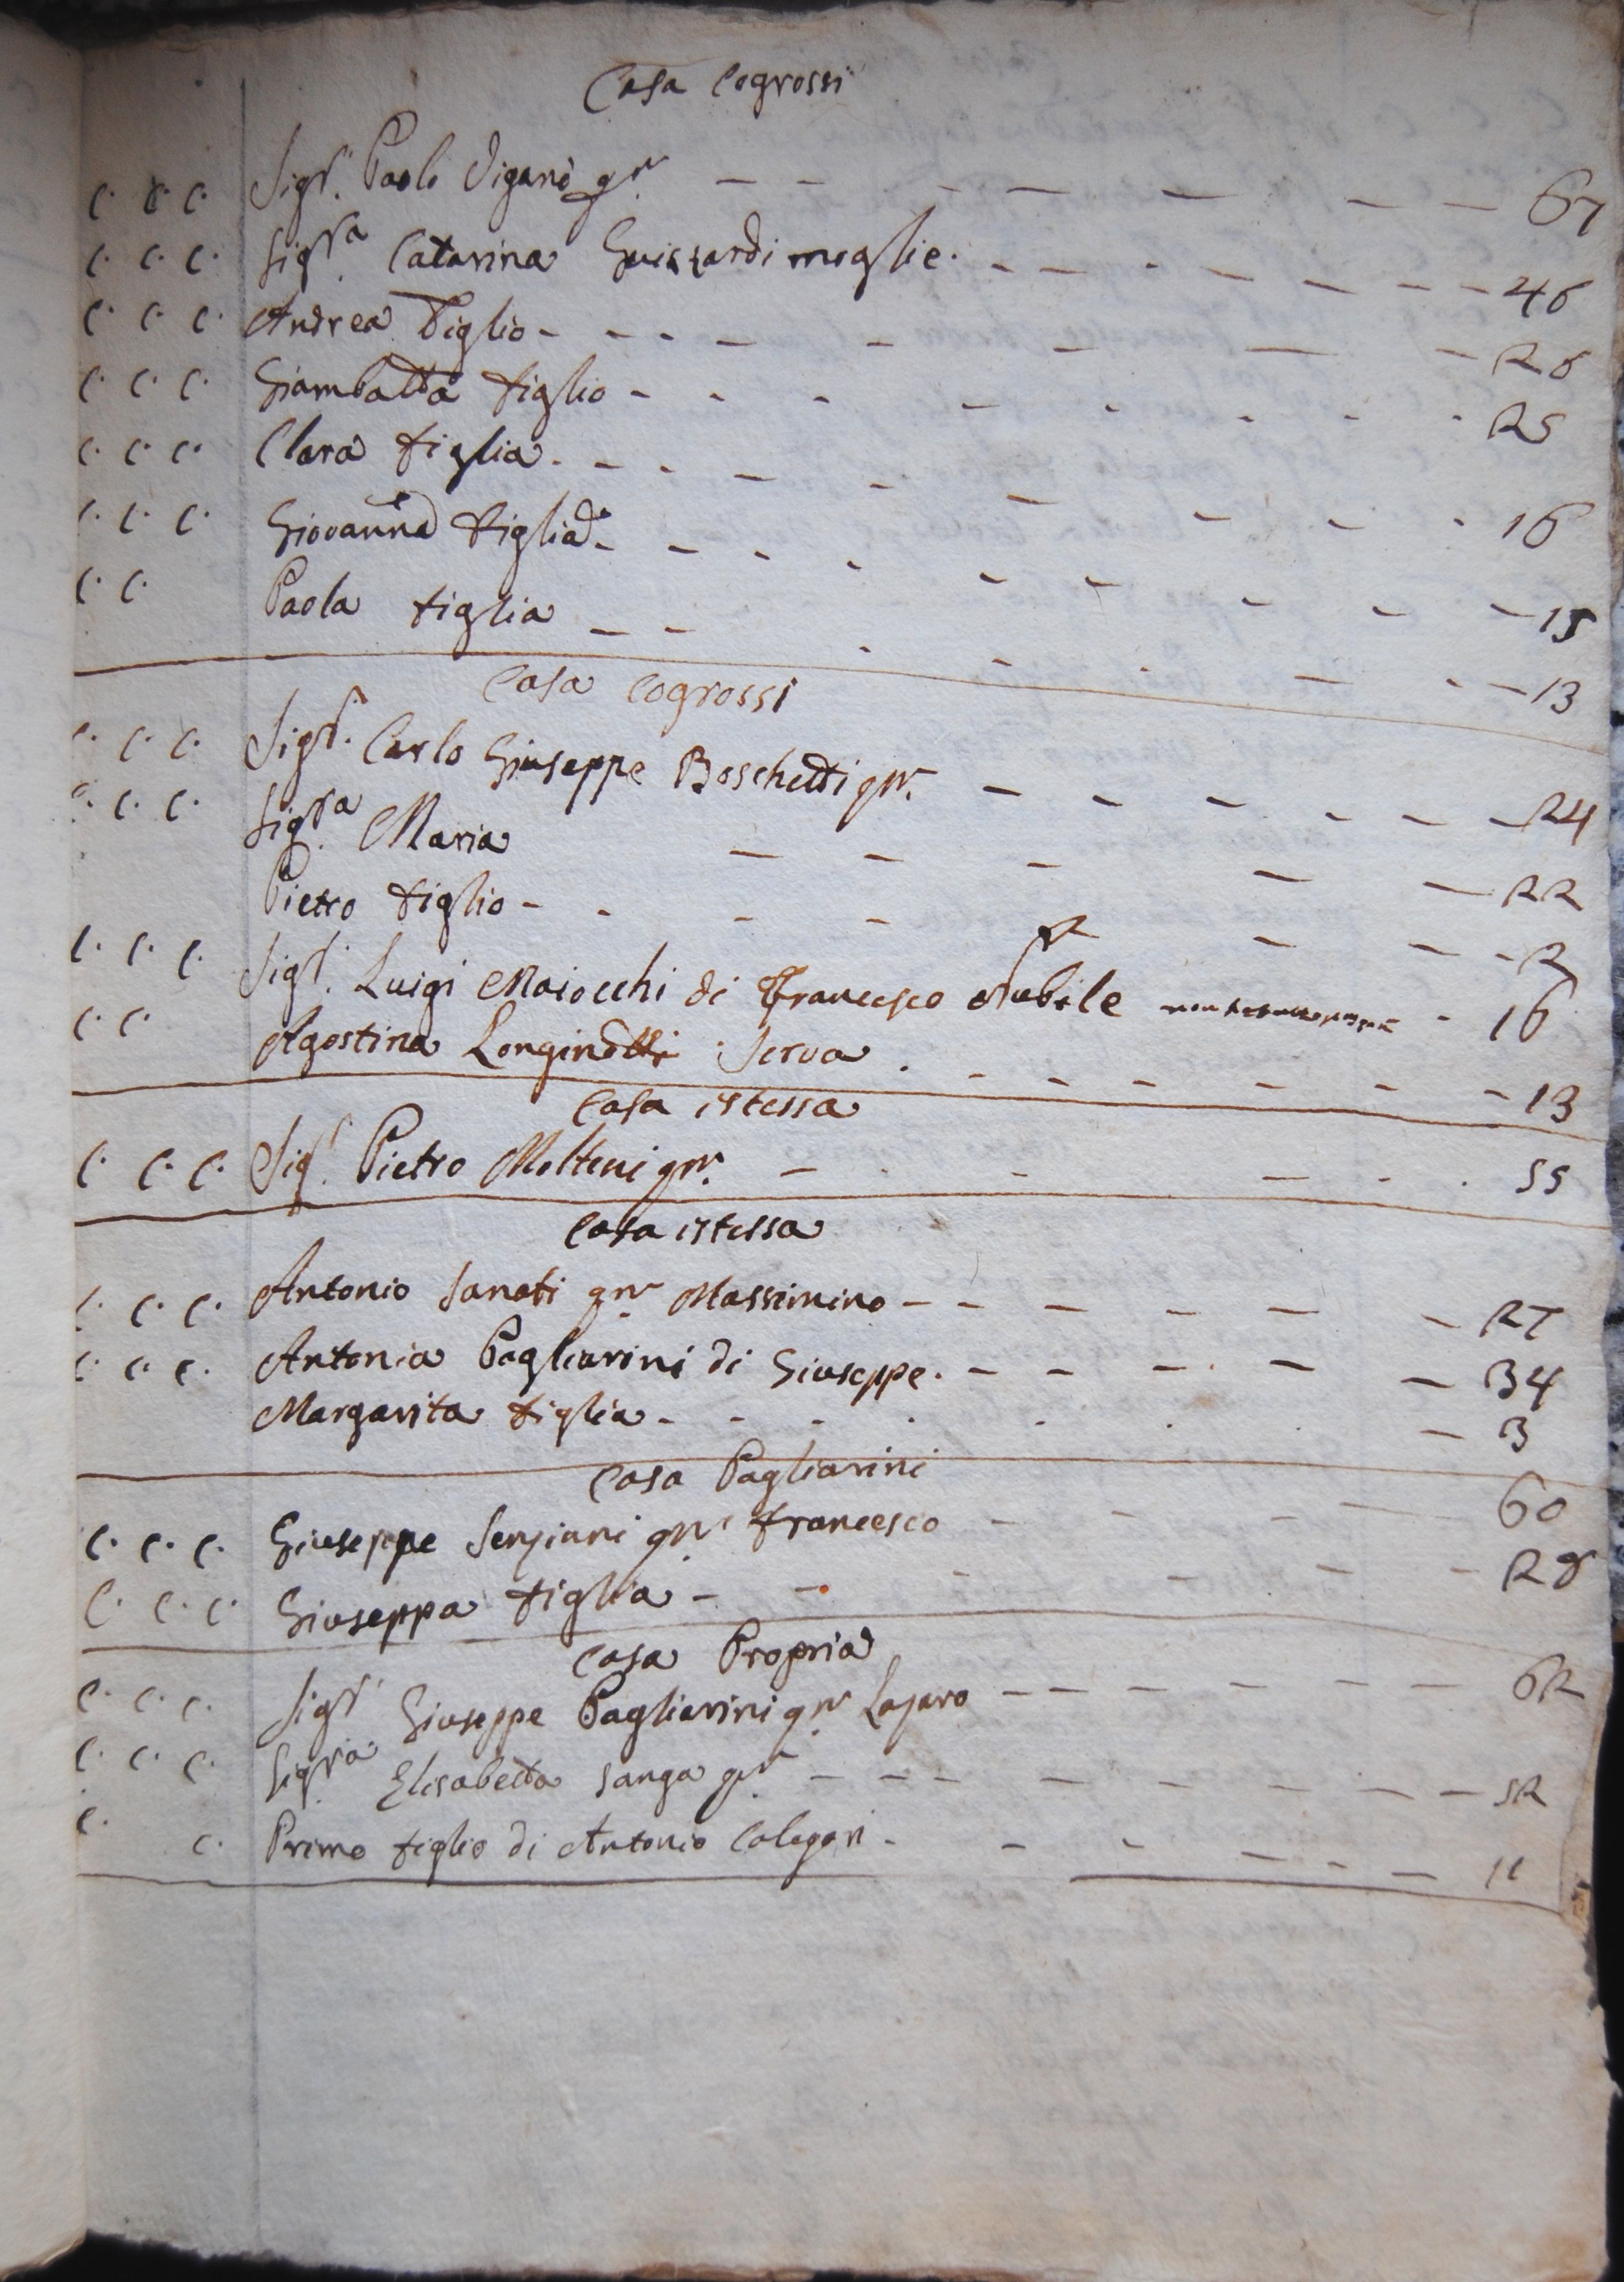 Casa Cogrossi
C. C. C. Sigr. Paolo Viganò qm - - - - - - 67
C. C. C. Sigra. Catarina Guizzardi moglie - - - - - 46
C. C. C. Andrea Figlio - - - - - - 26
C. C. C. Giambatta figlio - - - - - - 25
C. C. C. Clara figlia - - - - - - 16
C. C. C. Giovanna figlia - - - - - - 15
C. C. Paola figlia - - - - - - 13
Casa Cogrossi
C. C. C. Sigr. Carlo Giuseppe Boschetti qm. - - - - - - 24
C. C. C. Sigra. Maria - - - - - 22
Pietro figlio - - - - - - 2
C. C. C. Sigr. Luigi Maiocchi di Francesco Nubile - 16
C. C. Agostina Longinotti Serva - - - - - - 13
Casa istessa
C. C. C. Sigr. Pietro Molteni qm. - - - - - 55
Casa istessa
C. C. C. Antonio Sanoti qm Massimino - - - - - - 27
C. C. C. Antonia Pagliarini di Giuseppe - - - - - 34
Margarita figlia - - - - - - 3
Casa Pagliarini
C. C. C. Giuseppe Senziani qm Francesco - - - - 60
C. C. C. Giuseppa figlia - - - - - - 28
Casa Propria
C. C. C. Sigr. Giuseppe Pagliarini qm Lazaro - - - - - - 62
C. C. C. Sigra. Elisabetta Sanga qm - - - - - - 52
C. C. Primo figlio di Antonio Calegari - - - - - - 11